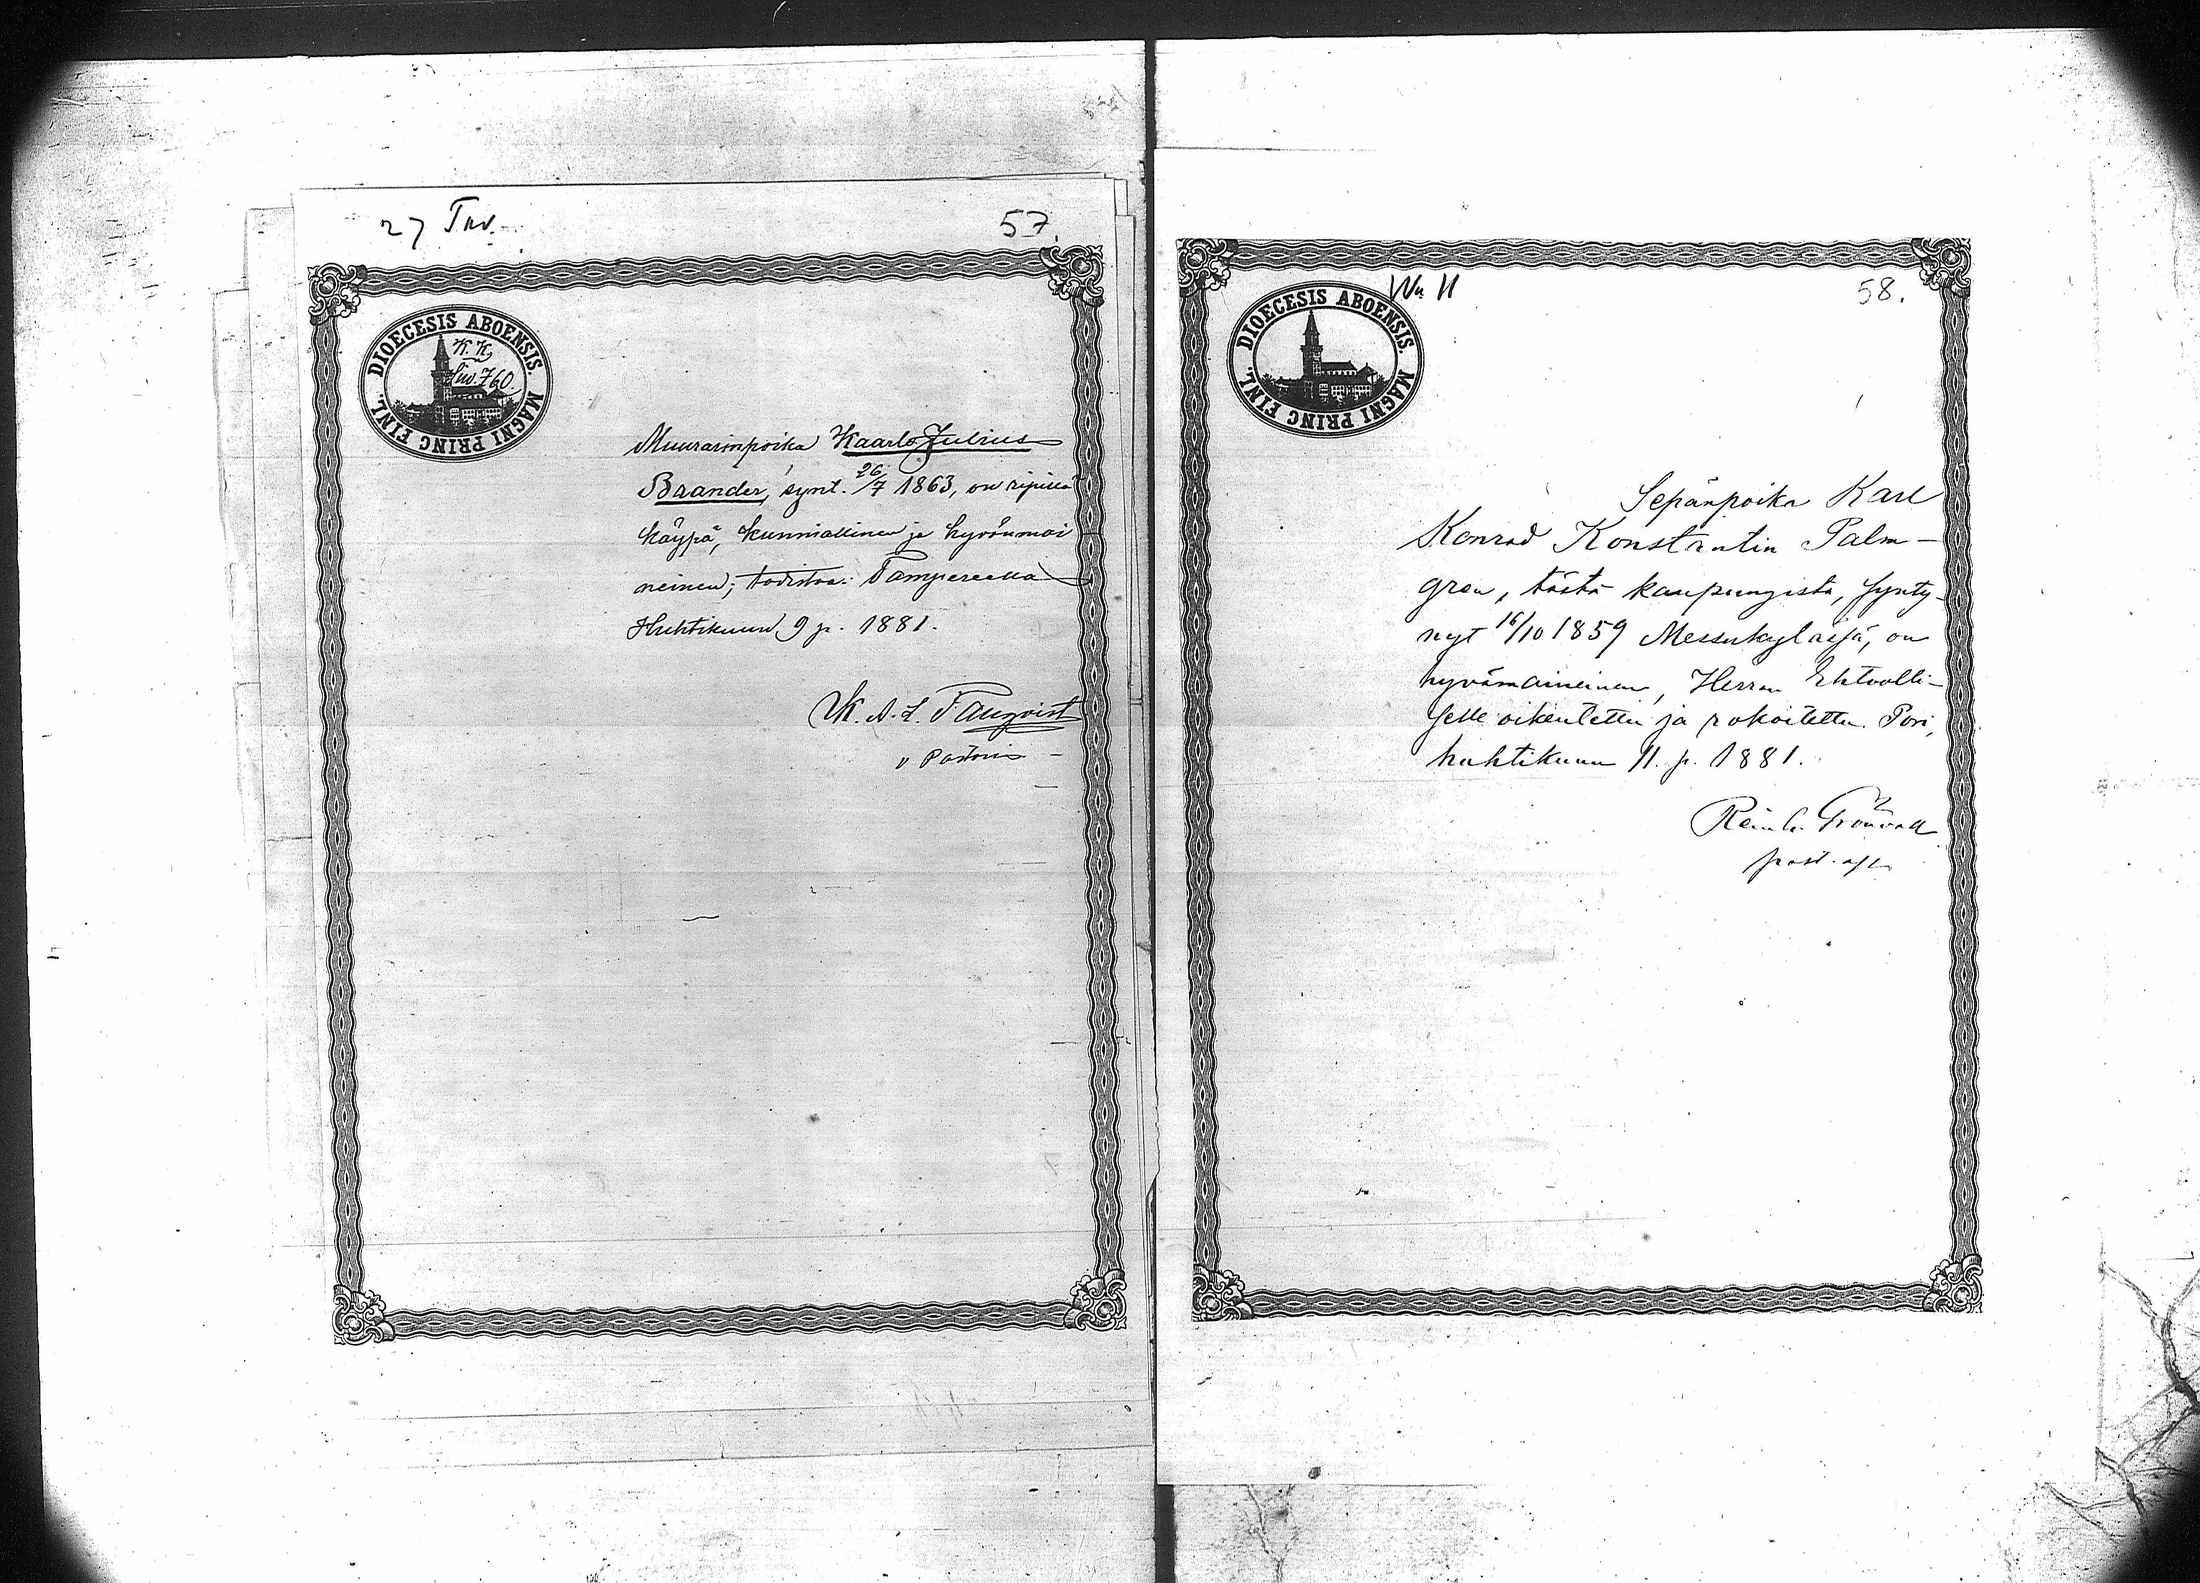 27 Tav.
57.
DIOECESIS ABOENSIS.
MAGNI PRINC FINL.
K. K.
Siv. 760.
Muurarinpoika Kaarlo Julius
Brander, synt. 26/7 1863, on ripillä
käypä, kunniallinen ja hyvänmai
neinen; todistaa: Tampereella
Huhtikuun 9 p. 1881.
K. A. L. Tauqvist
v Pastori
58.
DIOECESIS ABOENSIS.
MAGNI PRINC FINL.
Sepänpoika Karl
Konrad Konstantin Palm-
gren, tästä kaupungista, synty-
nyt 16/10 1859 Messukylässä, on
hyvämaineinen, Herran Ehtoolli-
selle oikeutettu ja rokoitettu. Pori,
huhtikuun 11. p. 1881.
Reinh. Grönvall
past. aff.